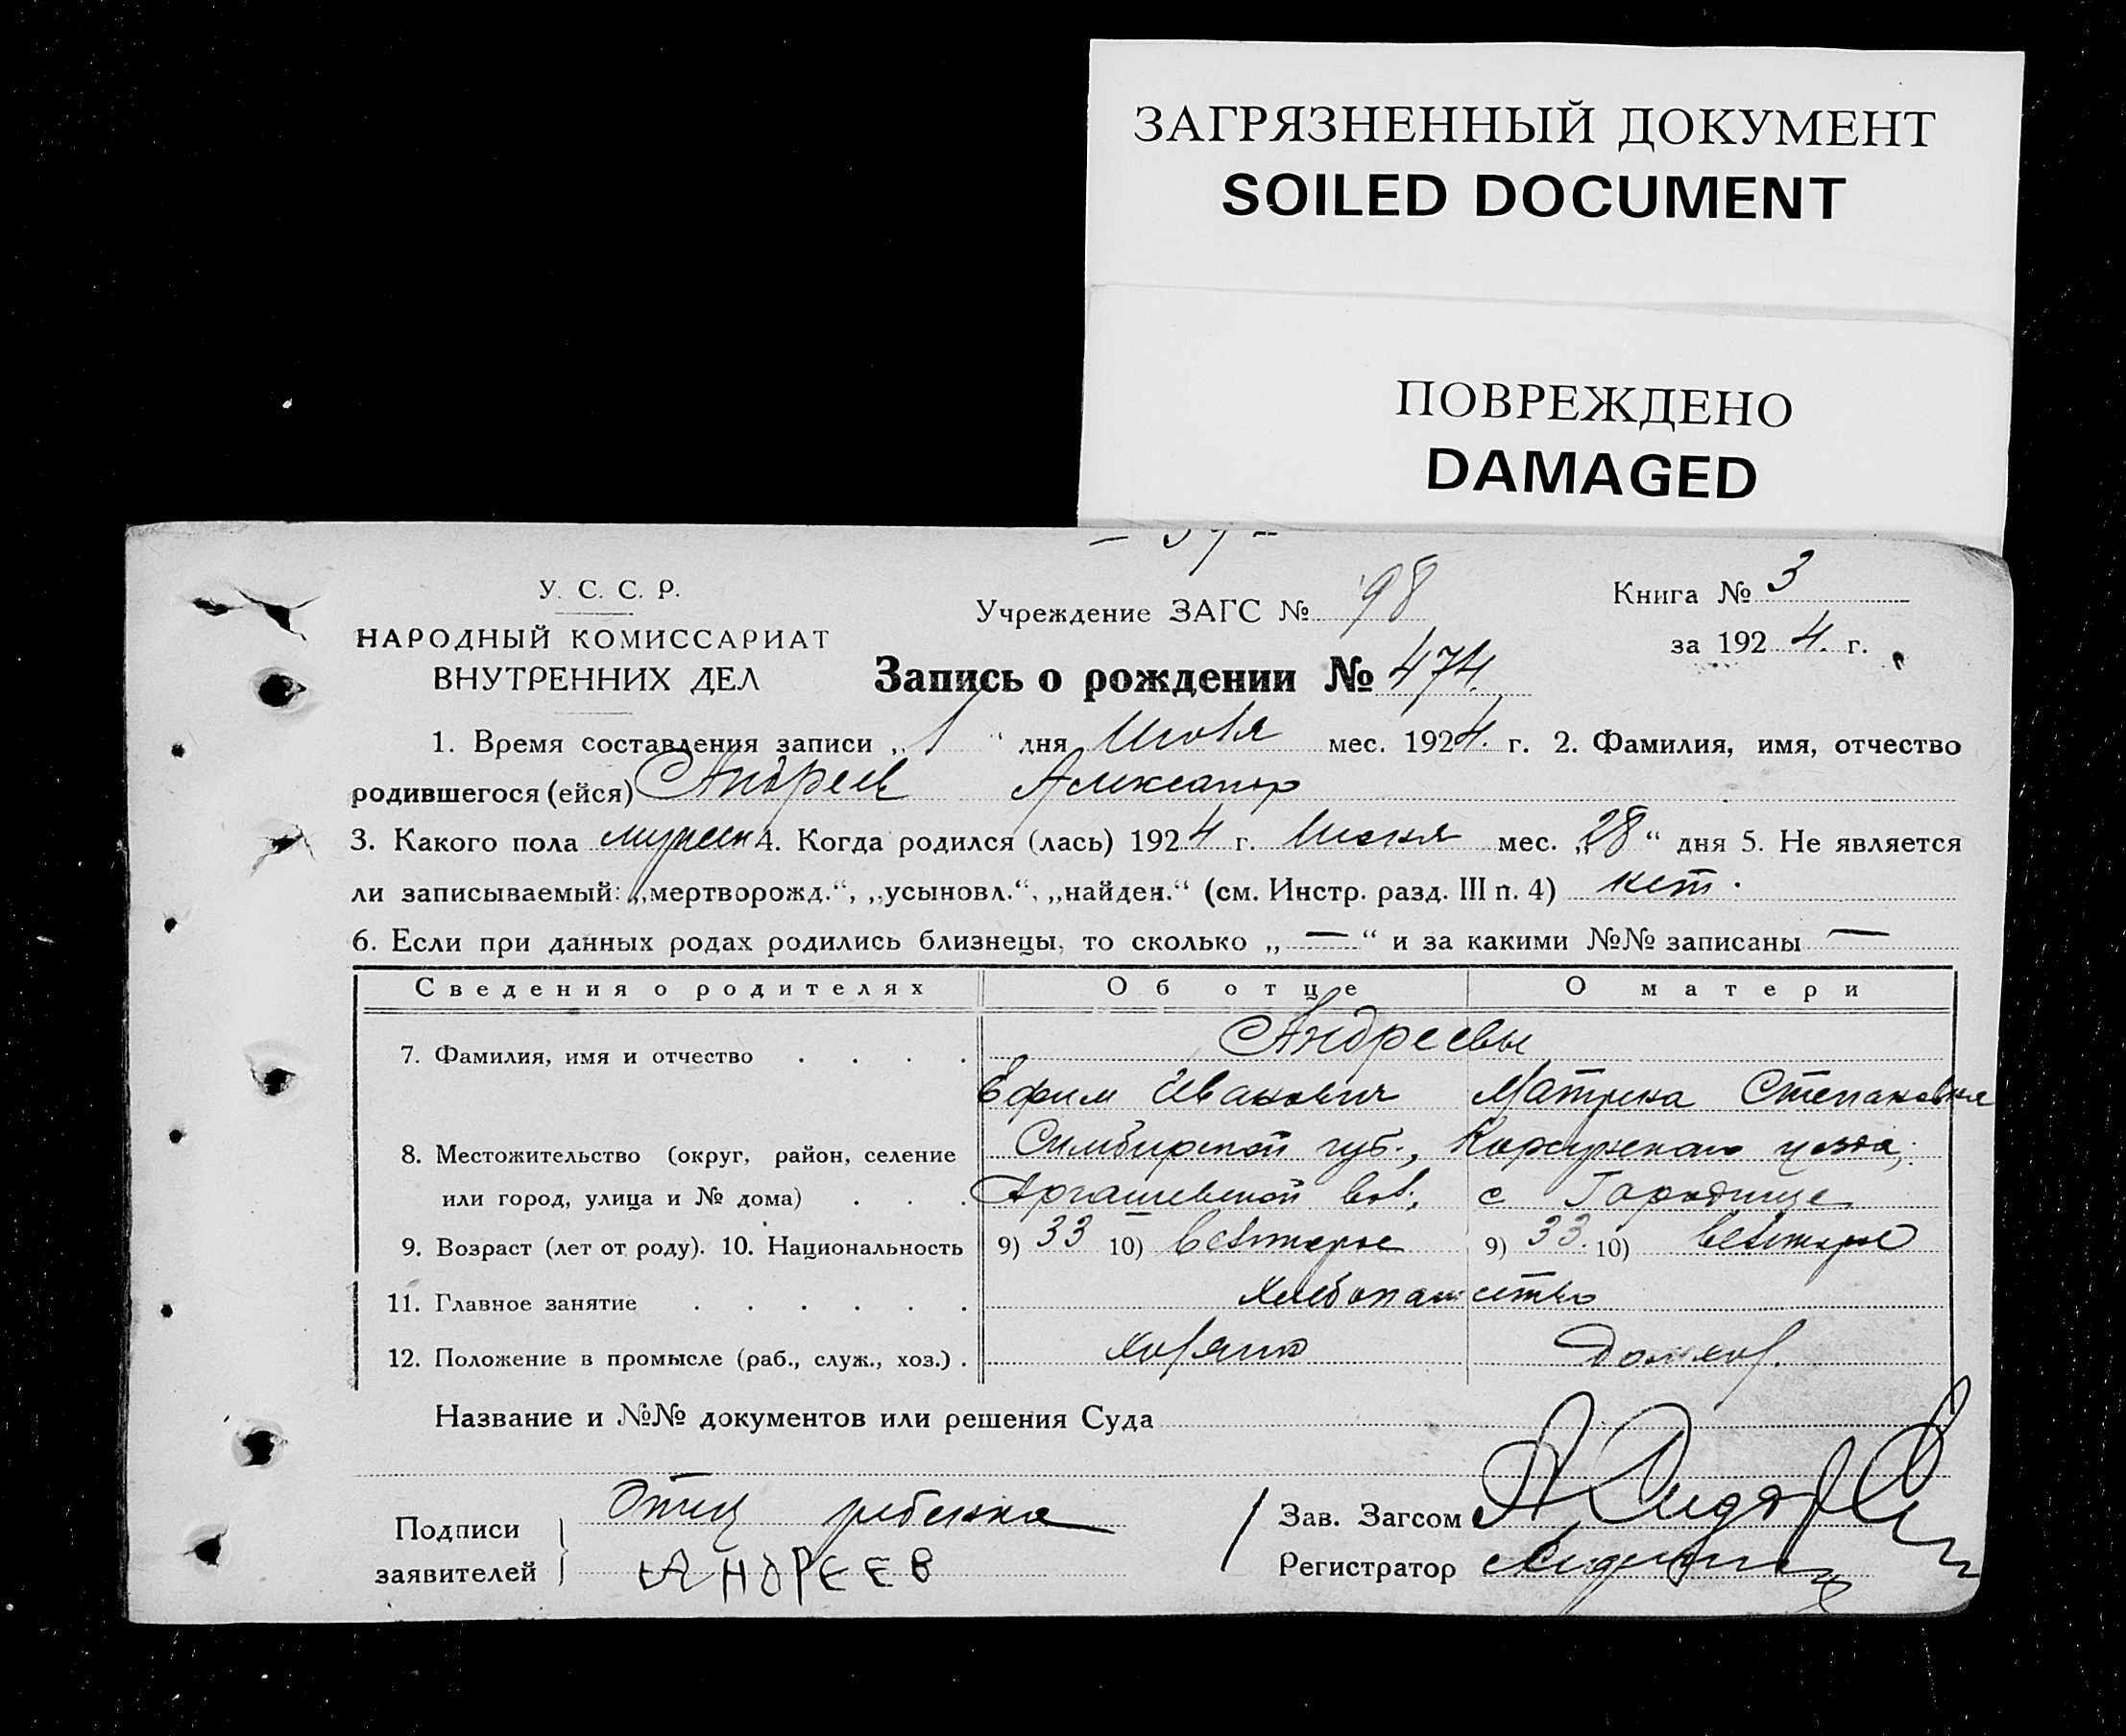 ЗАГРЯЗНЕННЫЙ ДОКУМЕНТ
SOILED DOCUMENT
ПОВРЕЖДЕНО
DAMAGED
У. С. С. Р.
НАРОДНЫЙ КОМИССАРИАТ
ВНУТРЕННИХ ДЕЛ
Учреждение ЗАГС № 98
Книга № 3
за 1924. г.
Запись о рождении № 474.
1. Время составления записи „ 1 “ дня Июля мес. 1924. г. 2. Фамилия, имя, отчество
родившегося (ейся) Андреев Александр
3. Какого пола мужск 4. Когда родился (лась) 1924 г. Июня мес. „28“ дня 5. Не является
ли записываемый: „мертворожд.“, „усыновл.“, „найден.“ (см. Инстр. разд. III п. 4) нет.
6. Если при данных родах родились близнецы, то сколько „ — “ и за какими №№ записаны —
Сведения о родителях Об отце О матери
7. Фамилия, имя и отчество . . . . Андреевы
Ефим Иванович Матрена Степановна
8. Местожительство (округ, район, селение Симбирской губ., Корсунского уезда,
или город, улица и № дома) . . . Аргашевской вол., с Городище
9. Возраст (лет от роду). 10. Национальность 9) 33 10) 9) 33. 10)
11. Главное занятие . . . . . . Хлебопашество
12. Положение в промысле (раб., служ., хоз.) . хозяин домхоз.
Название и №№ документов или решения Суда
Подписи заявителей Отец ребенка
АНДРЕЕВ
Зав. Загсом
Регистратор